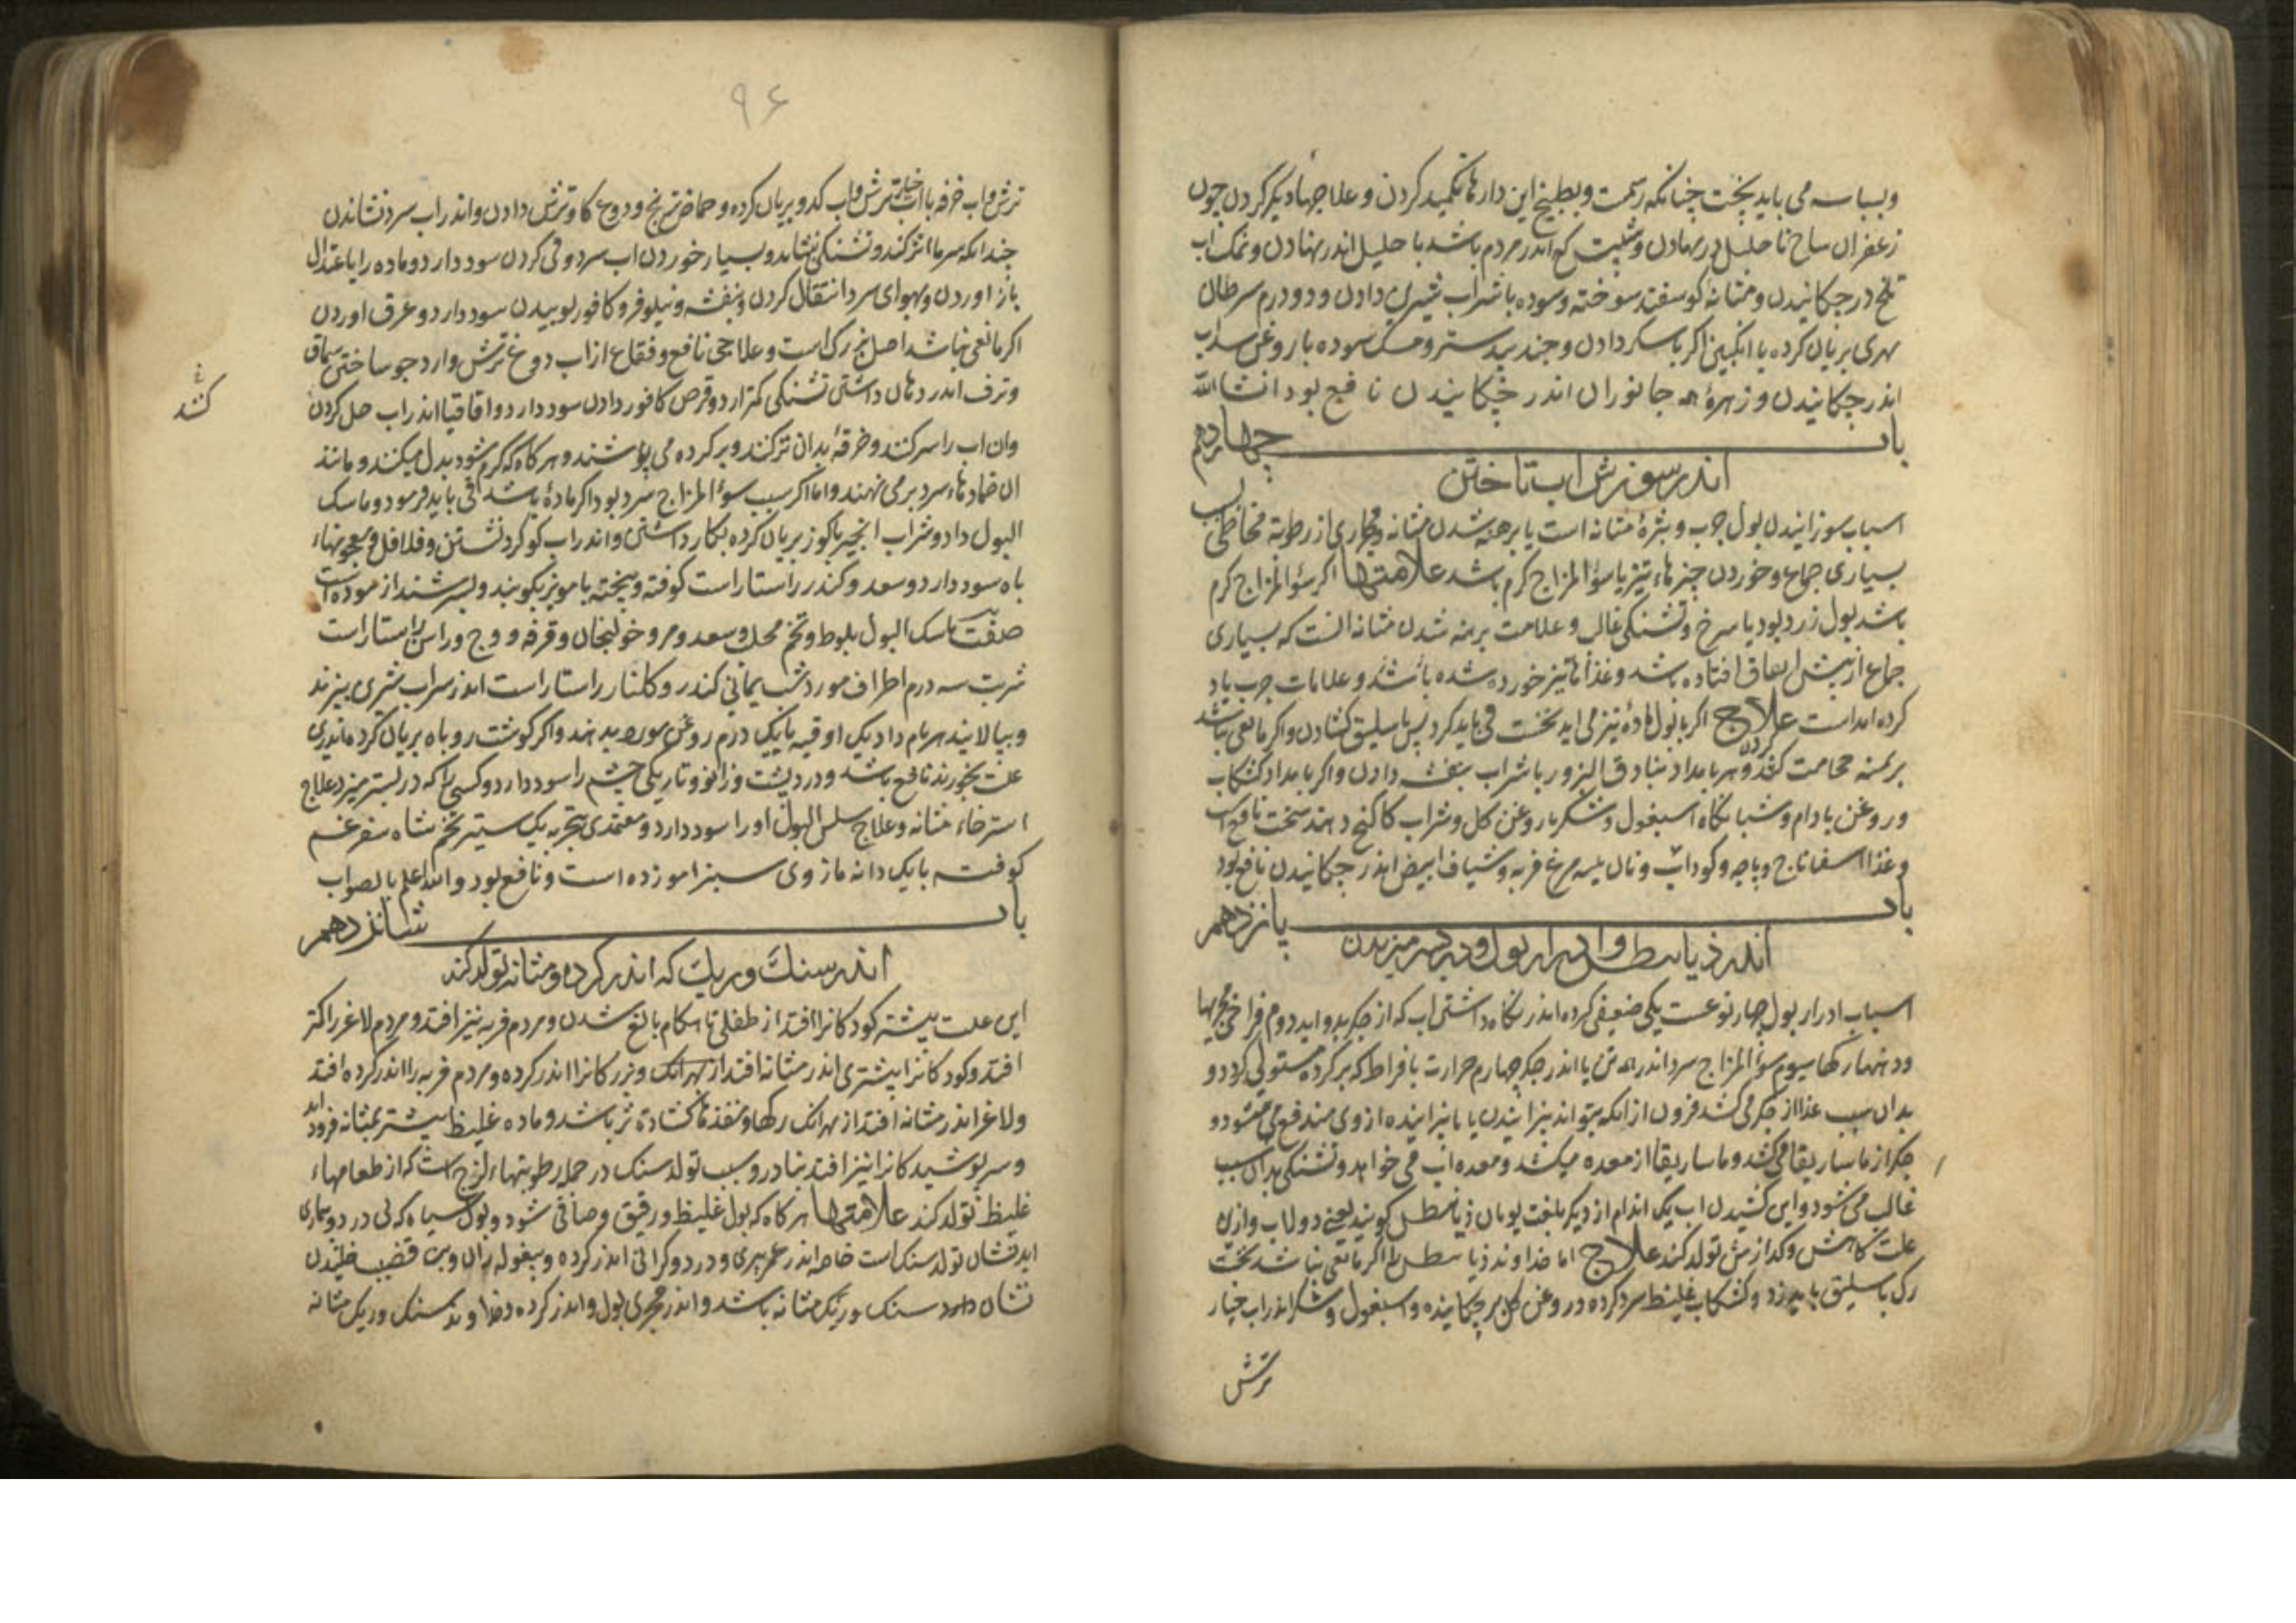 وبسباسه می باید پخت چنانکه رسمت وبطبیخ این دارها تکمید کردن و علاجها دیکر کردن چون
زعفران در نهادن و که اندر مردم باشد با حلیل اندر نهادن و نمک اب
تلخ در چکانیدن و مثانه کوسفند سوخته و سوده با شراب دادن و دو درم سرطان
نهری بریان کرده با انکبین اکر دادن و جند بیدستر و مسک سوده با روغن سداب
اندر چکانیدن و زهرۀ همه جانوران اندر چکانیدن نافع بود انشاالله
باب چهاردهم
اندر سوزش اب تاختن
اسباب سوزانیدن بول جرب و بثرۀ مثانه است یا برهنه شدن مثانه و مجاری از رطوبة مخاطی
بسیاری جماع و خوردن چیزهاء تیز یا سؤالمزاج کرم باشد علامتها اکر سؤالمزاج کرم
باشد بول زرد بود یا سرخ و تشنکی غالب و علامت برهنه شدن مثانه انست که بسیاری
جماع از پیش اتفاق افتاده باشد و غذاها تیز خورده شده باشد و علامات جرب یاد
کرده امداست علاج اکر با بول مادۀ تیز می اید نخست قی باید کرد پس باسلیق کشادن و اکر مانعی نباشد
حجامت کردن و هر بامداد بنادق البزور با شراب بنفشه دادن و اکر بامداد کشکاب
و روغن بادام و شبانکاه اسبغول و شکر با روغن کل و شراب کاکنج دهند سخت نافع است
و غذا اسفاناج و پاچه و کوداب و نان مرغ فربه و شیاف ابیض اندر چکانیدن نافع بود
باب پانزدهم
اندر ذیابیطس و ادرار بول و در بستر میزیدن
اسباب ادرار بول چهار نوعست یکی ضعیفی کرده اندر نکاه داشتن اب که از جکر بدو اید دوم فراخی مجریها
و دهنها رکها سیوم سؤالمزاج سرد اندر همه تن یا اندر جکر چهارم حرارت بافراط که بر کرده مستولی کردد و
بدان سبب غذا از جکر می کشد فزون از انکه بتواند ازوی مندفع می شود و
جکر از ماساریقا می کشد و ماساریقا از معده میکشد و معده اب می خواهد و تشنکی بدان سبب
غالب می شود و این کشیدن اب یک اندام از دیکر بلغت یونان ذیابیطس کویند یعنی دولاب وازین
علت کاهش و کدازش تولد کند علاج اما خداوند ذیابیطس را اکر مانعی نباشد نخست
رک باسلیق باید زد و کشکاب غلیظ سرد کرده و روغن کل بر چکانیده و اسبغول و شکر اندر اب خیار
ترش
۹۶
ترش و اب خرفه با اب خیار ترش و اب کدو بریان کرده و حماض ترنج و دوغ کاو ترش دادن و اندر اب سرد نشاندن
چندانکه سرما اثر کند و تشنکی بنشاند و بسیار خوردن اب سرد و قی کردن سود دارد و ماده را باعتدال
باز اوردن و بهوای سرد انتقال کردن و بنفشه و نیلوفر و کافور بوییدن سود دارد و عرق اوردن
اکر مانعی نباشد اصلی بزرک است و علاجی نافع و فقاع از اب دوغ ترش و ارد جو ساختن سماق
و ترف اندر دهان داشتن تشنکی کمتر ارد و قرص کافور دادن سود دارد و اقاقیا اندر اب حل کردن
وان اب را سرد کنند و خرقۀ بدان تر کنند و بر کرده می پوشند و هر کاه که کرم شود بدل میکنند و مانند
ان ضمادهاء سرد بر می نهند و اما اکر سبب سوء المزاج سرد بود اکر مادۀ باشد قی باید فرمود و ماسک
البول داد و شراب انجیر با کوز بریان کرده بکار داشتن و اندر اب کوکرد نشستن و فلافلی و معجونهاء
باه سود دارد و سعد و کندر راستاراست کوفته و بیخته با مویز بکوبند و بسرشند ازموده است
صفت ماسک البول بلوط و تخم و سعد و مر و خولنجان و قرفه و وج و راسن راستاراست
شربت سه درم اطراف مورد شب یمانی کندر و کلنار راستاراست اندر شراب بپزند
و بپالایند هر بامداد یک اوقیه با یک درم روغن مورد بدهند و اکر کوشت روباه بریان کرده اندرین
علت بخورند نافع باشد و درد پشت و زانو و تاریکی چشم را سود دارد و کسی را که در بستر میزد علاج
استرخاء مثانه و علاج سلس البول او را سود دارد و معتمدی بتجربه یک ستیر تخم شاه سفرغم
کوفته با یک دانه مازوی سبز ازموده است و نافع بود والله اعلم بالصواب
باب شانزدهم
اندر سنک و ریک که اندر کرده و مثانه تولد کند
این علت بیشتر کودکانرا افتد از طفلی تا هنکام بالغ شدن و مردم فربه نیز افتد و مردم لاغر را کمتر
افتد و کودکانرا بیشتری اندر مثانه افتد از بهرانک و بزرکانرا اندر کرده و مردم فربه را اندر کرده افتد
و لاغر اندر مثانه افتد از بهرانک رکها و منفذها کشاده تر باشد و ماده غلیظ بیشتر بمثانه فرود اید
و سر پوشیدکانرا نیز افتد بنادر و سبب تولد سنک در جمله رطوبتهاء لزج است که از طعامهاء
غلیظ تولد کند علامتها هرکاه که بول غلیظ و رقیق و صافی شود و بول سیاه که بی درد و بیماری
اید نشان تولد سنک است خاصه اندر عمر پیری و درد و کرانی اندر کرده و بیغوله ران و بن قضیب خلیدن
نشان سنک و ریک مثانه باشد و اندر مجری بول و اندر کرده خداوند سنک و ریک مثانه
کشد